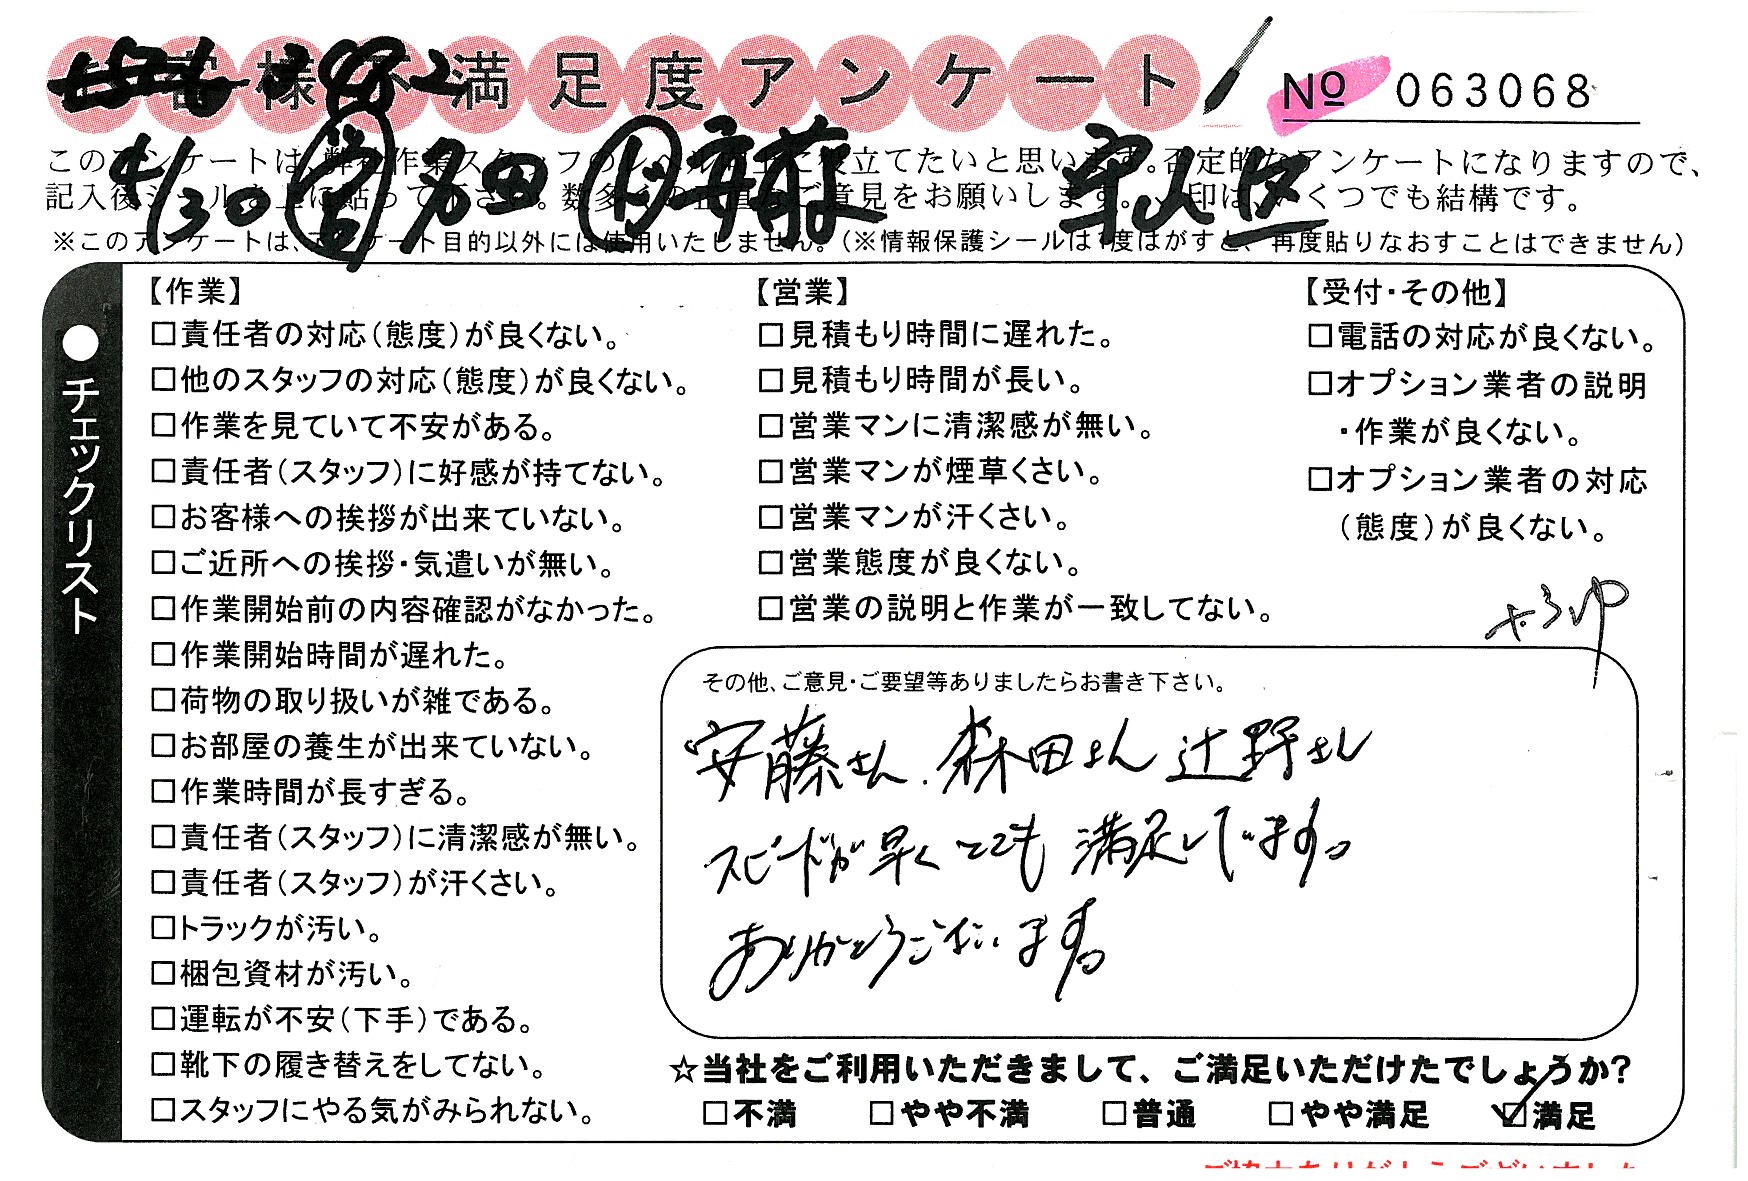 お客様不満足度アンケート
№ 063068
4/30
守山区
このアンケートは弊社作業スタッフのレベル向上に役立てたいと思います。否定的なアンケートになりますので、
記入後シールを上に貼って下さい。数多くの正直なご意見をお願いします。✓印は、いくつでも結構です。
※このアンケートは、アンケート目的以外には使用いたしません。(※情報保護シールは1度はがすと、再度貼りなおすことはできません)
●チェックリスト
【作業】
□責任者の対応(態度)が良くない。
□他のスタッフの対応(態度)が良くない。
□作業を見ていて不安がある。
□責任者(スタッフ)に好感が持てない。
□お客様への挨拶が出来ていない。
□ご近所への挨拶・気遣いが無い。
□作業開始前の内容確認がなかった。
□作業開始時間が遅れた。
□荷物の取り扱いが雑である。
□お部屋の養生が出来ていない。
□作業時間が長すぎる。
□責任者(スタッフ)に清潔感が無い。
□責任者(スタッフ)が汗くさい。
□トラックが汚い。
□梱包資材が汚い。
□運転が不安(下手)である。
□靴下の履き替えをしてない。
□スタッフにやる気がみられない。
【営業】
□見積もり時間に遅れた。
□見積もり時間が長い。
□営業マンに清潔感が無い。
□営業マンが煙草くさい。
□営業マンが汗くさい。
□営業態度が良くない。
□営業の説明と作業が一致してない。
【受付・その他】
□電話の対応が良くない。
□オプション業者の説明
・作業が良くない。
□オプション業者の対応
(態度)が良くない。
その他、ご意見・ご要望等ありましたらお書き下さい。
安藤さん、森田さん 辻野さん
スピードが早く とても 満足しています。
ありがとうございます。
☆当社をご利用いただきまして、ご満足いただけたでしょうか?
□不満 □やや不満 □普通 □やや満足 ☑満足
ご協力ありがとうございました